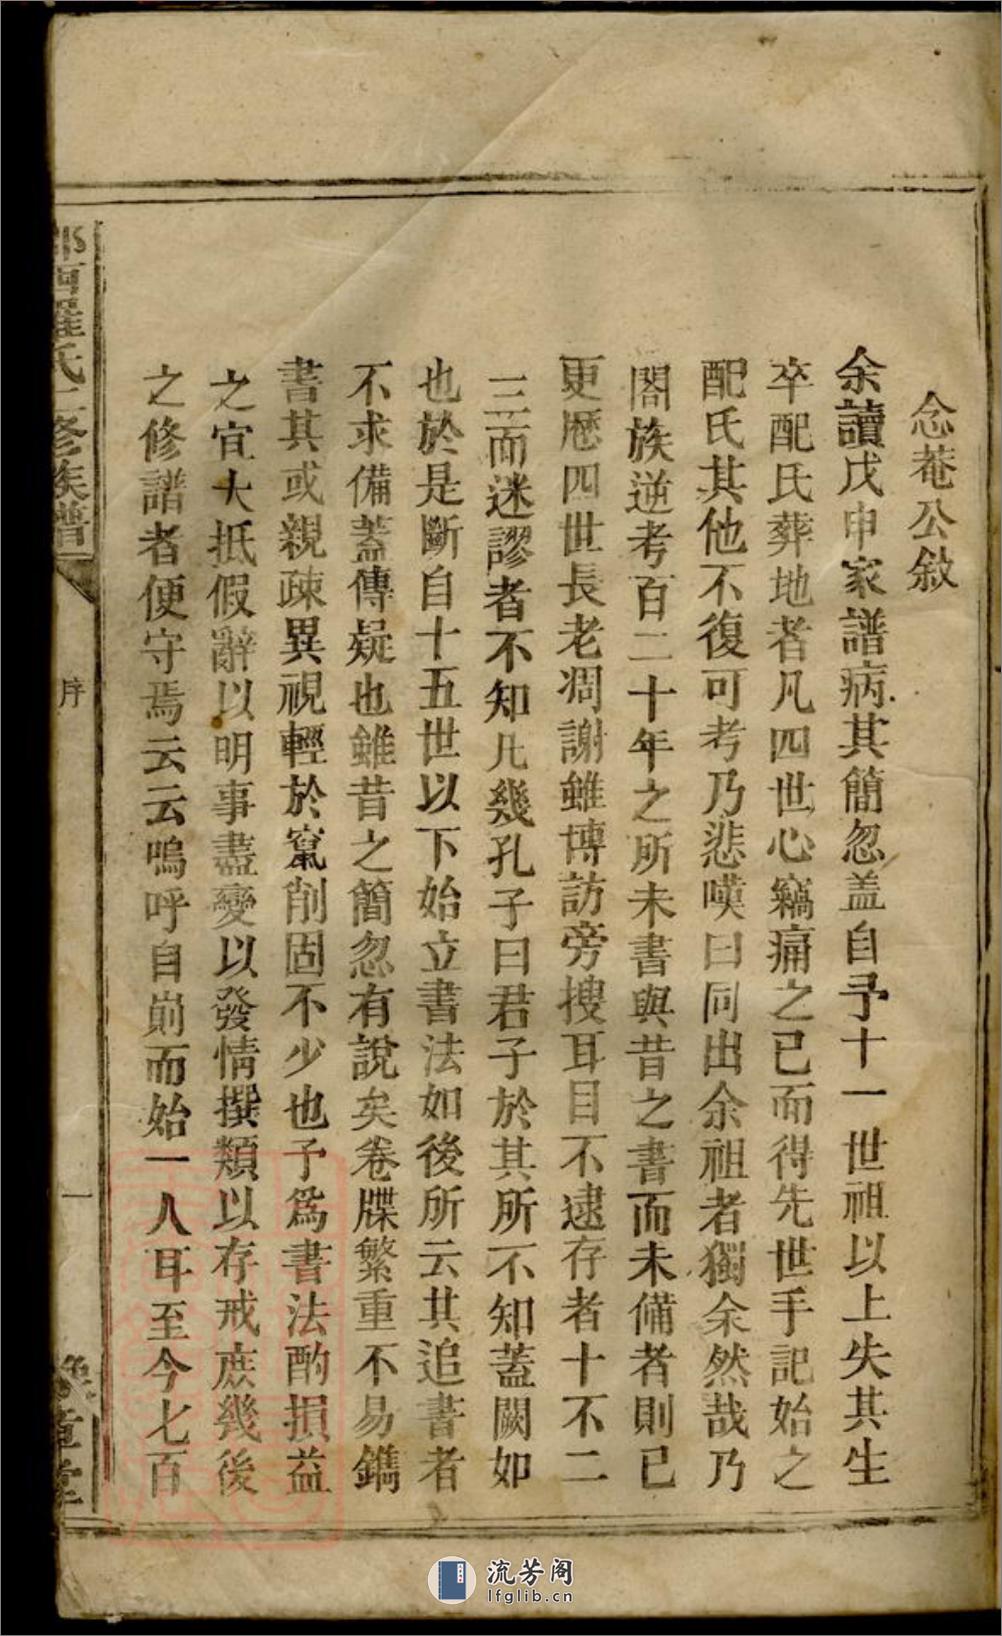 念菴公敘
余讀戊申家譜病其簡忽盖自予十一世祖以上失其生
卒配氏葬地者凡四世心竊痛之已而得先世手記始之
配氏其他不復可考乃悲嘆曰同出余祖者獨余然哉乃
閤族逆考百二十年之所未書與昔之書而未備者則已
更歷四世長老凋謝雖博訪旁搜耳目不逮存者十不二
三而迷謬者不知凡幾孔子曰君子於其所不知蓋闕如
也於是斷自十五世以下始立書法如後所云其追書者
不求備蓋傳疑也雖昔之簡忽有說矣卷牒繁重不易鐫
書其或親疎異視輕於竄削固不少也予為書法酌損益
之宜大抵假辭以明事盡變以發情撰類以存戒庶幾後
之修譜者便守焉云云嗚呼自崱而始一人耳至今七百
西羅氏二修族譜
序
一
豫章堂
流芳阁
lfglib.cn